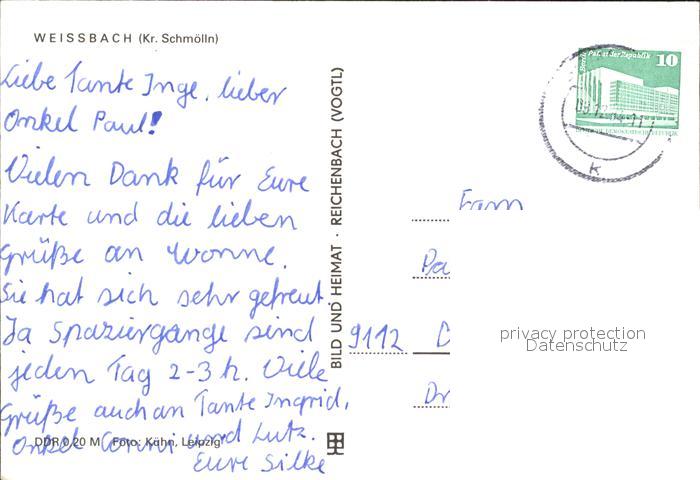 WEISSBACH (Kr. Schmölln)
Liebe Tante Inge, lieber
Onkel Paul!
Vielen Dank für Eure
Karte und die lieben
Grüße an Yvonne.
Sie hat sich sehr gefreut
Ja Spaziergänge sind
jeden Tag 2-3 h. Viele
Grüße auch an Tante Ingrid,
Onkel Conni und Lutz.
Eure Silke
DDR 0,20 M Foto: Kühn, Leipzig
BILD UND HEIMAT · REICHENBACH (VOGTL)
10
Berlin Pal. der Republik
Fam
Da
9112
Dr
privacy protection
Datenschutz